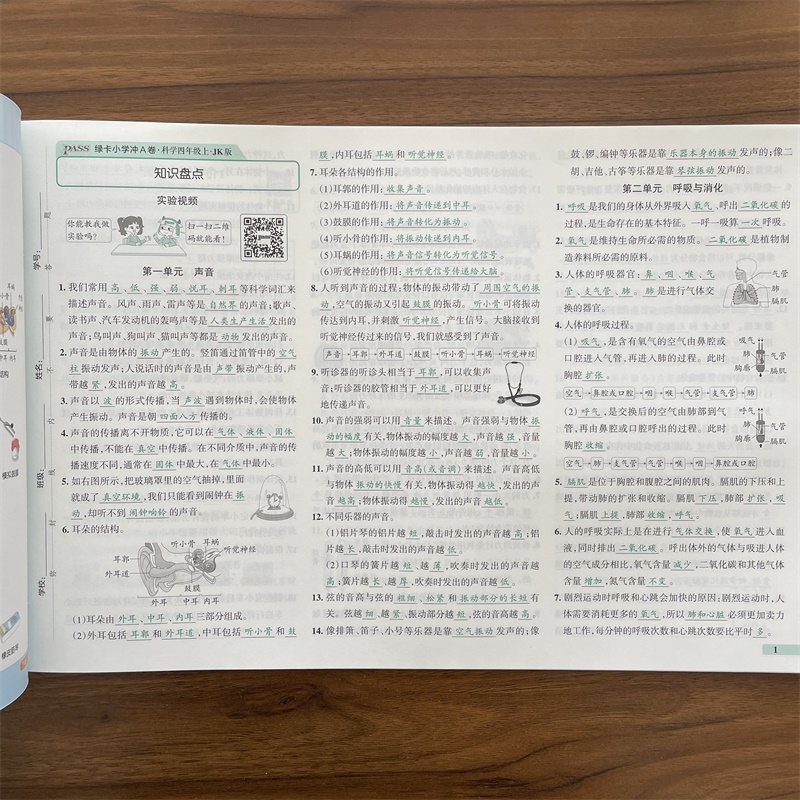 PASS 绿卡小学冲A卷·科学四年级上·JK版
知识盘点
实验视频
你能教我做
实验吗?
扫一扫二维
码就能看!
第一单元 声音
1. 我们常用高、低、强、弱、悦耳、刺耳等科学词汇来
描述声音。风声、雨声、雷声等是自然界的声音;歌声、
读书声、汽车发动机的轰鸣声等是人类生产生活发出的
声音;鸟叫声、狗叫声、猫叫声等都是动物发出的声音。
2. 声音是由物体的振动产生的。竖笛通过笛管中的空气
柱振动发声;人说话时的声音是由声带振动产生的,声
带越紧,发出的声音越高。
3. 声音以波的形式传播,当声波遇到物体时,会使物体
产生振动。声音是朝四面八方传播的。
4. 声音的传播离不开物质,它可以在气体、液体、固体
中传播,不能在真空中传播。在不同介质中,声音的传
播速度不同,通常在固体中最大,在气体中最小。
5. 如右图所示,把玻璃罩里的空气抽掉,里面
就成了真空环境,我们只能看到闹钟在振
动,却听不到闹钟响铃的声音。
6. 耳朵的结构。
听小骨 耳蜗
耳郭
听觉神经
外耳道
鼓膜
外耳 中耳 内耳
(1)耳朵由外耳、中耳、内耳三部分组成。
(2)外耳包括耳郭和外耳道,中耳包括听小骨和鼓
膜,内耳包括耳蜗和听觉神经。
7. 耳朵各结构的作用。
(1)耳郭的作用:收集声音。
(2)外耳道的作用:将声音传送到中耳。
(3)鼓膜的作用:将声音转化为振动。
(4)听小骨的作用:将振动传递到内耳。
(5)耳蜗的作用:将声音信号转化为听觉信号。
(6)听觉神经的作用:将听觉信号传递给大脑。
8. 人听到声音的过程:物体的振动带动了周围空气的振
动,空气的振动又引起鼓膜的振动。听小骨可将振动
传达到内耳,并刺激听觉神经,产生信号。大脑接收到
听觉神经传过来的信号,我们就感受到了声音。
声音→耳郭→外耳道→鼓膜→听小骨→耳蜗→听觉神经
9. 听诊器的听诊头相当于耳郭,可以收集声
音;听诊器的胶管相当于外耳道,可以更好
地传递声音。
10. 声音的强弱可以用音量来描述。声音强弱与物体振
动的幅度有关,物体振动的幅度越大,声音越强,音量
越大;物体振动的幅度越小,声音越弱,音量越小。
11. 声音的高低可以用音高(或音调)来描述。声音高低
与物体振动的快慢有关,物体振动得越快,发出的声
音越高;物体振动得越慢,发出的声音越低。
12. 不同乐器的声音。
(1)铝片琴的铝片越短,敲击时发出的声音越高;铝
片越长,敲击时发出的声音越低。
(2)口琴的簧片越短、越薄,吹奏时发出的声音越
高;簧片越长、越厚,吹奏时发出的声音越低。
13. 弦的音高与弦的粗细、松紧和振动部分的长短有
关。弦越细、越紧、振动部分越短,弦的音高越高。
14. 像排箫、笛子、小号等乐器是靠空气振动发声的;像
鼓、锣、编钟等乐器是靠乐器本身的振动发声的;像二
胡、古他、古筝等乐器是靠琴弦振动发声的。
第二单元 呼吸与消化
1. 呼吸是我们的身体从外界吸入氧气、呼出二氧化碳的
过程,是生命存在的基本特征。一呼一吸算一次呼吸。
2. 氧气是维持生命所必需的物质。二氧化碳是植物制
造养料所必需的原料。
3. 人体的呼吸器官:鼻、咽、喉、气
管、支气管、肺。肺是进行气体交
换的器官。
气管
肺
膈肌
4. 人体的呼吸过程。
(1)吸气,是含有氧气的空气由鼻腔或
口腔进入气管,再进入肺的过程。此时
胸腔扩张。
吸气
肺
胸廓
膈肌
空气→鼻腔或口腔→咽→喉→气管→支气管→肺
(2)呼气,是交换后的空气由肺部到气
管,再由鼻腔或口腔呼出的过程。此时
胸腔收缩。
呼气
肺
胸廓
膈肌
空气→肺→支气管→气管→喉→咽→鼻腔或口腔
5. 膈肌是位于胸腔和腹腔之间的肌肉。膈肌的下压和上
提,带动肺的扩张和收缩。膈肌下压,肺部扩张,吸
气;膈肌上提,肺部收缩,呼气。
6. 人的呼吸实际上是在进行气体交换,使氧气进入血
液,同时排出二氧化碳。呼出体外的气体与吸进人体
的空气成分相比,氧气含量减少,二氧化碳和其他气体
含量增加,氮气含量不变。
7. 剧烈运动时呼吸和心跳会加快的原因:剧烈运动时,人
体需要消耗更多的氧气,所以肺和心脏必须更加卖力
地工作,每分钟的呼吸次数和心跳次数要比平时多。
1
学号:
姓名:
班级:
学校: